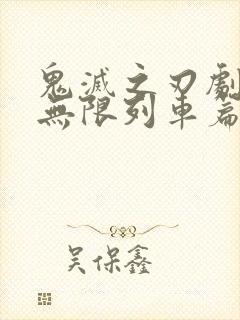 鬼滅之刃劇
無限列車篇
吳保鑫